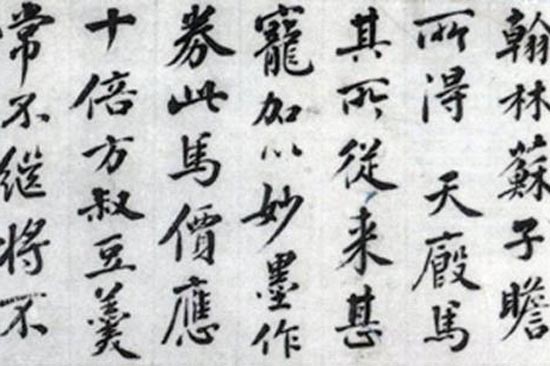 翰林蘇子瞻
所得 天廄馬
其所從来甚
寵加以妙墨作
券此馬價應
十倍方叔豆羹
常不继将不